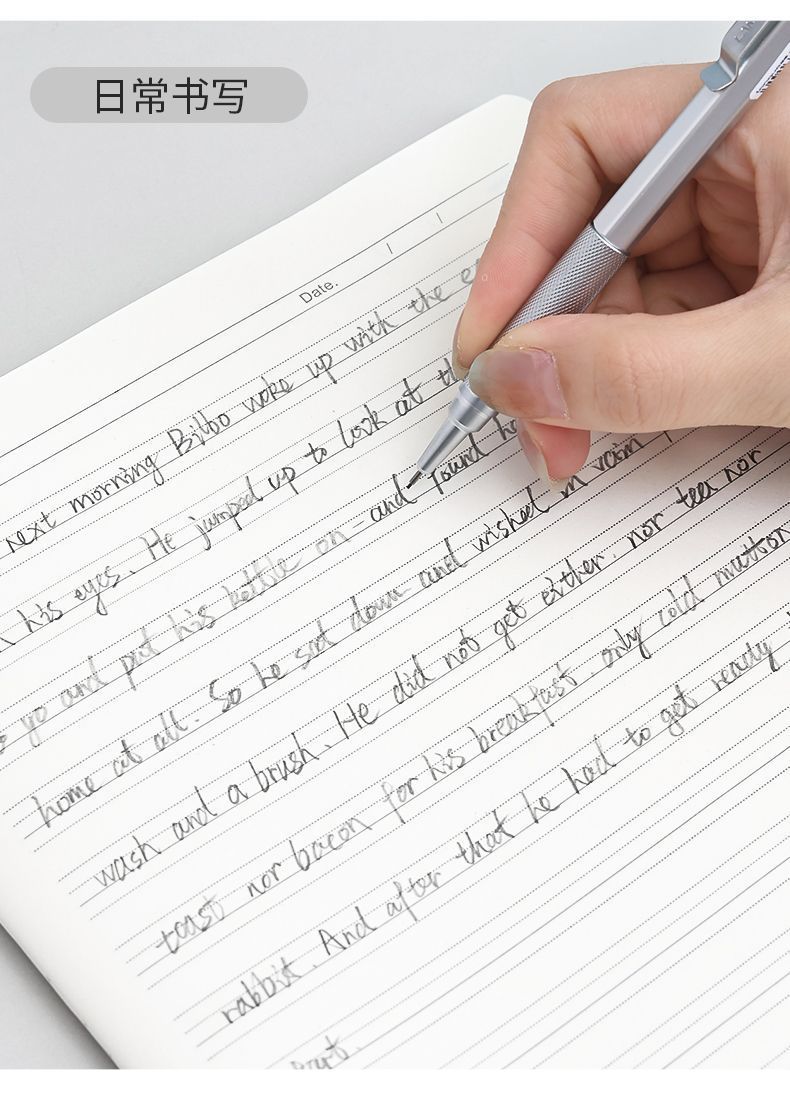 日常书写
Date.
next morning Bilbo woke up with the
his eyes. He jumped up to look at
go and put his kettle on - and found
home at all. So he sat down and wished in vain
wash and a brush. He did not get either. nor tea nor
toast nor bacon for his breakfast. only cold mutton
rabbit. And after that he had to get ready